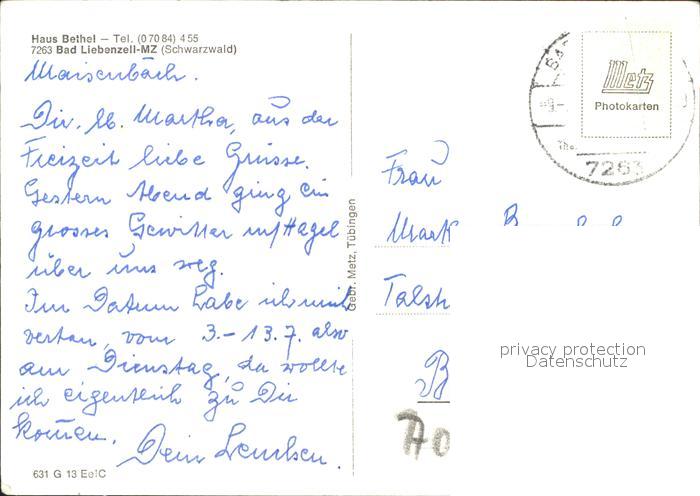 Haus Bethel – Tel. (07084) 455
7263 Bad Liebenzell-MZ (Schwarzwald)
Maisenbach.
Dir, lb. Martha, aus der
Freizeit liebe Grüsse.
Gestern Abend ging ein
grosses Gewitter m/Hagel
über uns weg.
Im Datum habe ich mich
vertan, vom 3.–13.7. also
am Dienstag, da wollte
ich eigentlich zu Dir
kommen.
Dein
631 G 13 EełC
Gebr. Metz, Tübingen
Metz
Photokarten
7263
Frau
Mart
Talst
B
privacy protection
Datenschutz